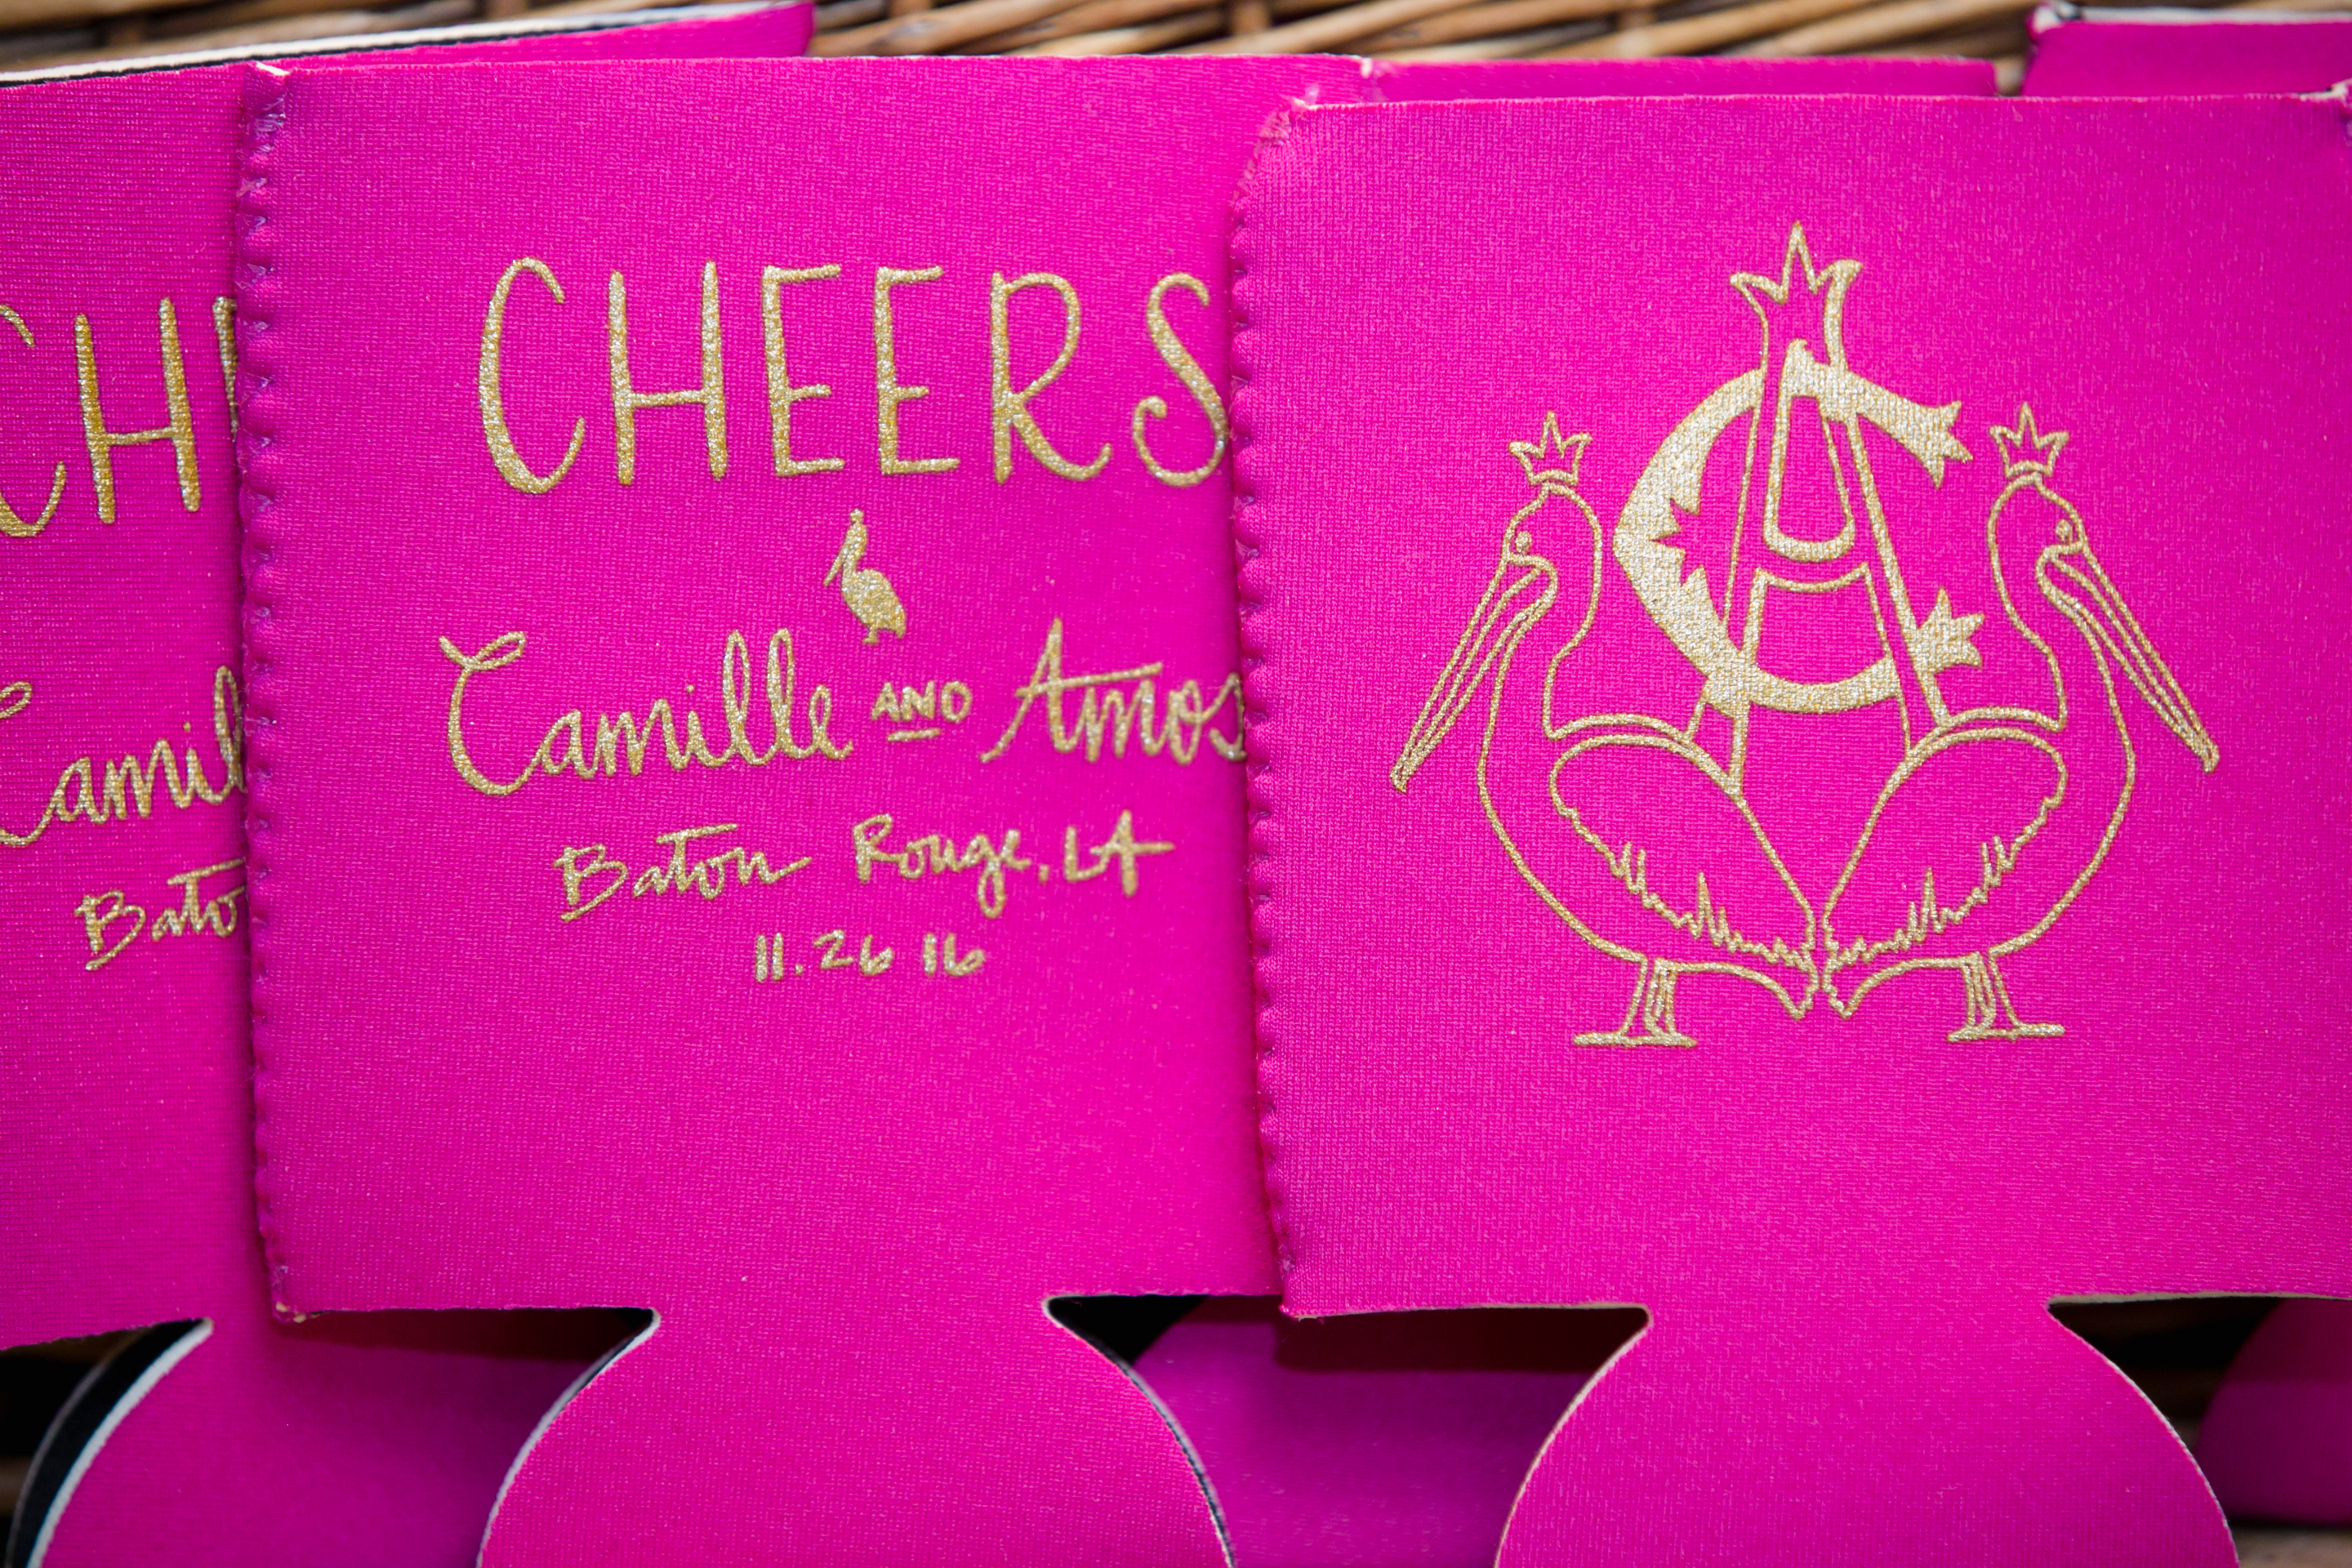 CH
Camil
Bato
CHEERS
Camille AND Amos
Baton Rouge, LA
11.26 16
CA